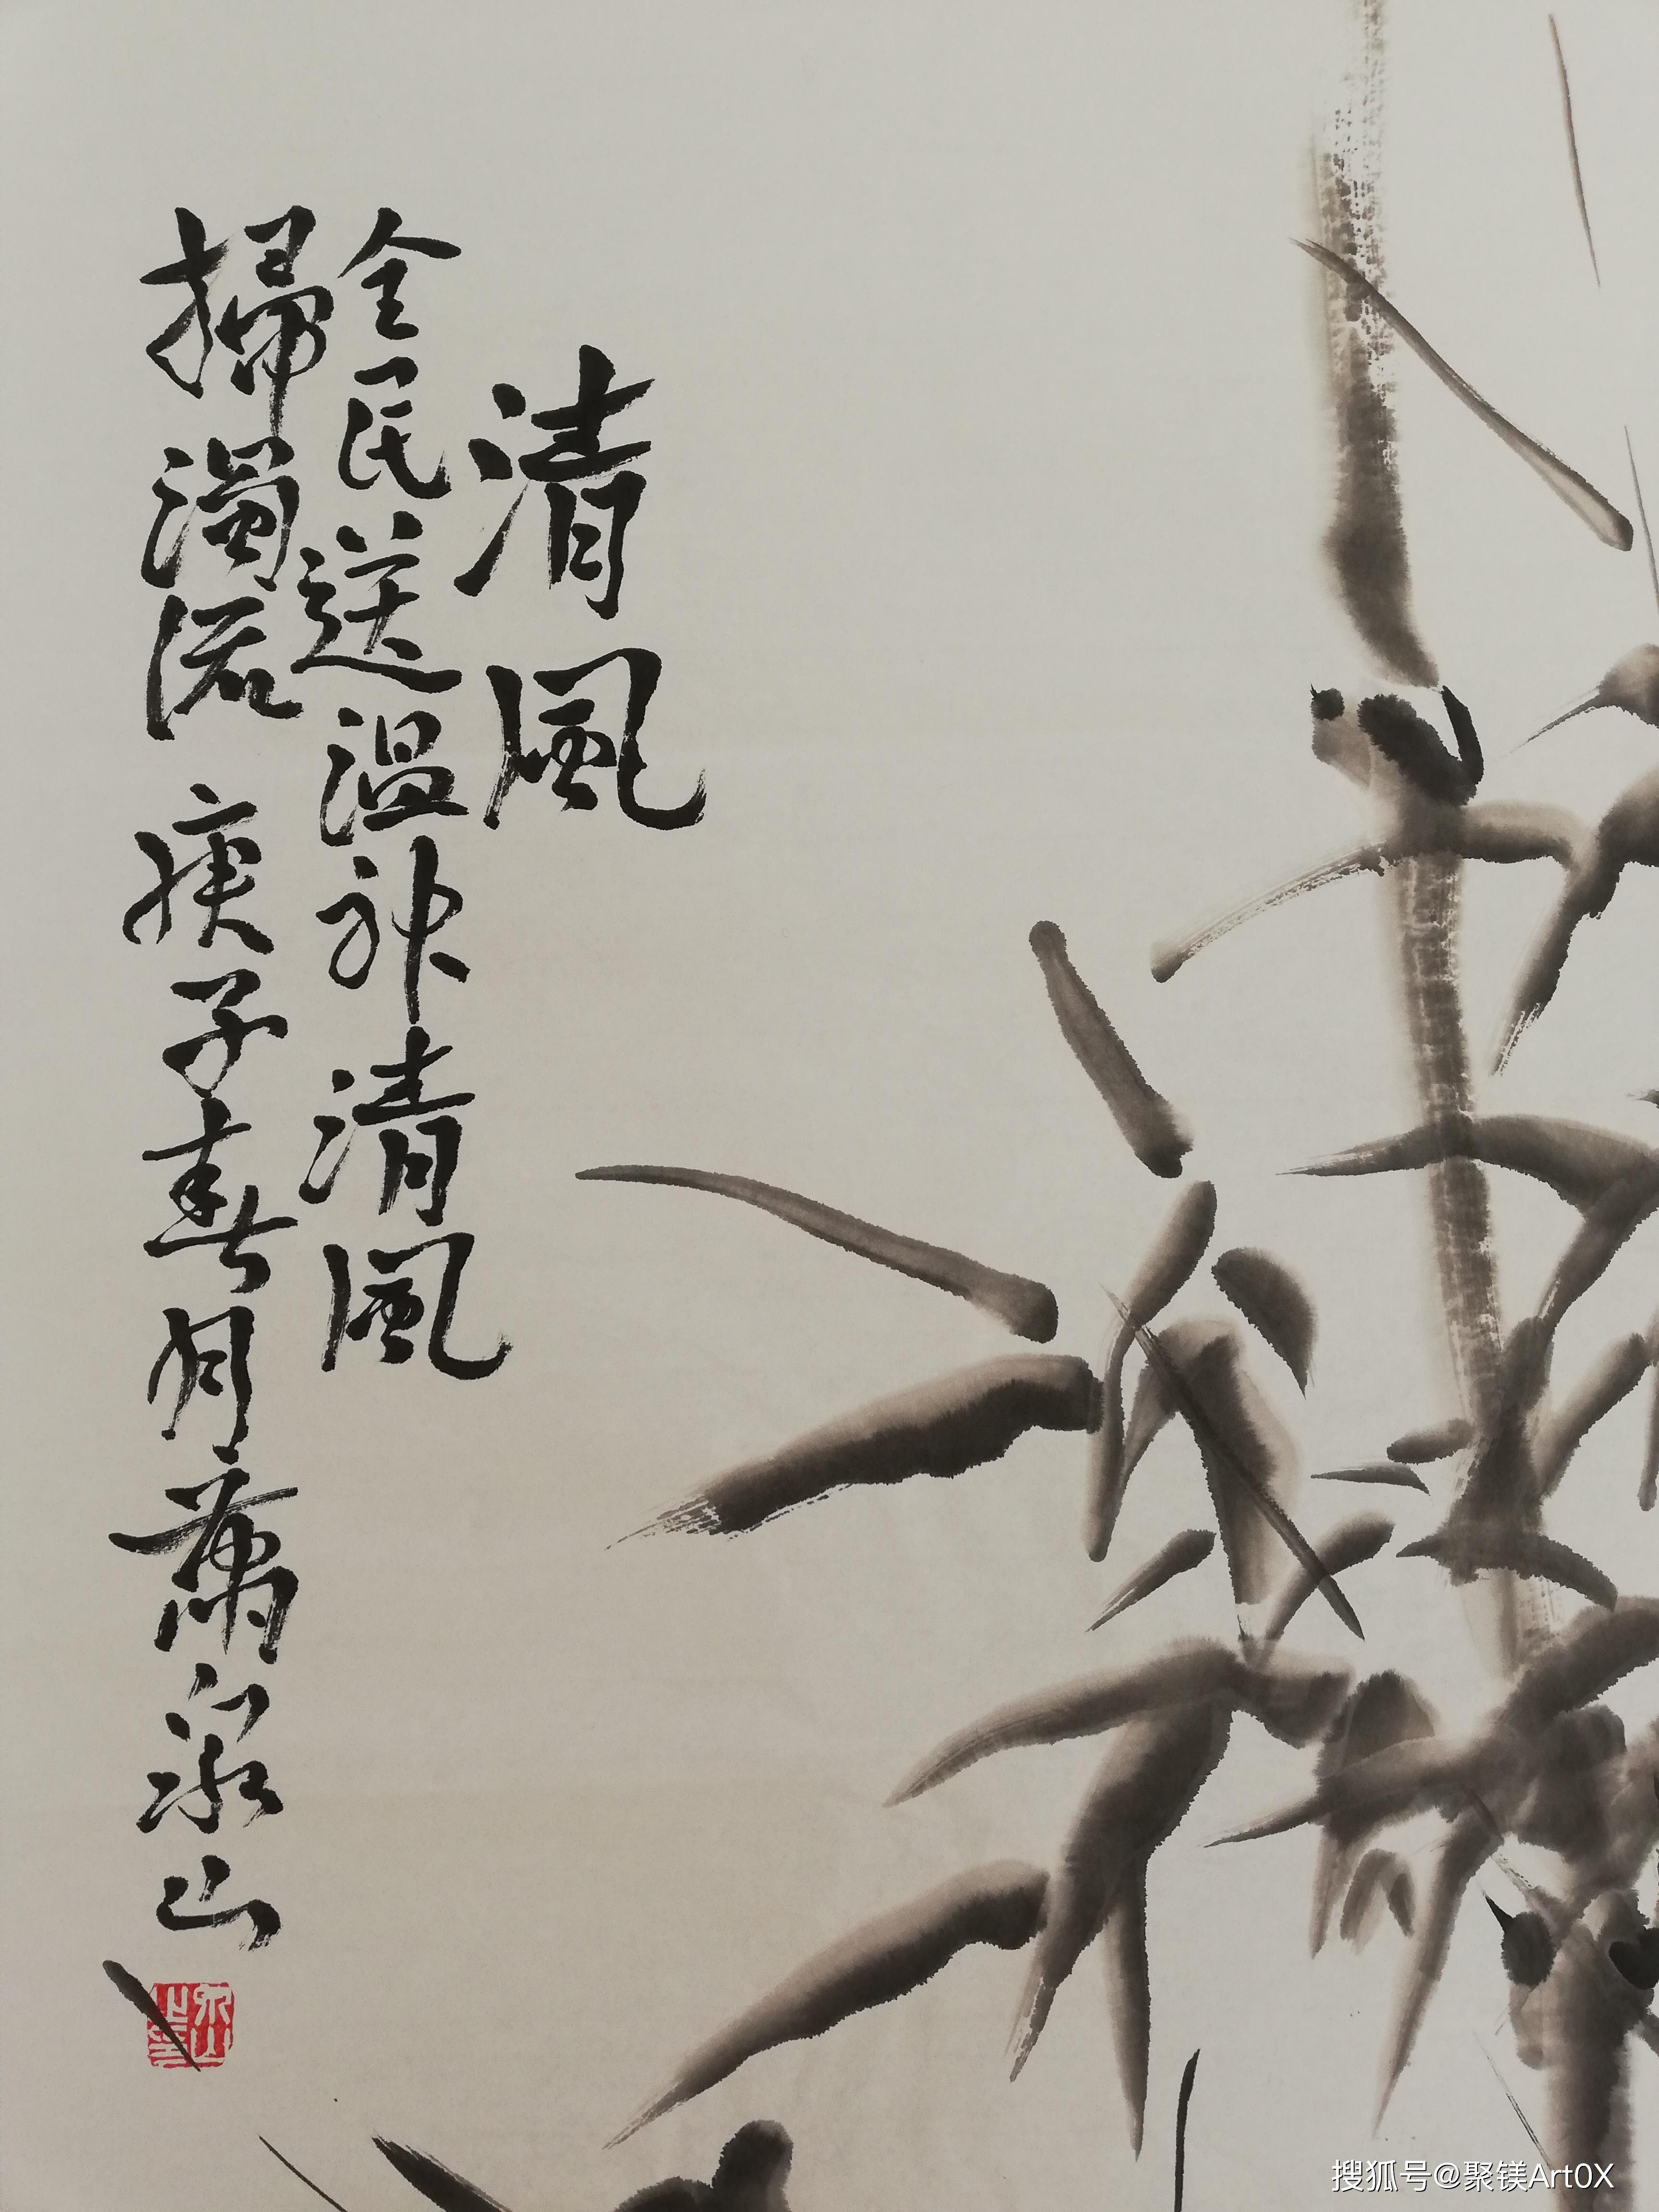 清風
全民送温神清風
掃濁流庚子春月蕭泉山
搜狐号@聚镁Art0X